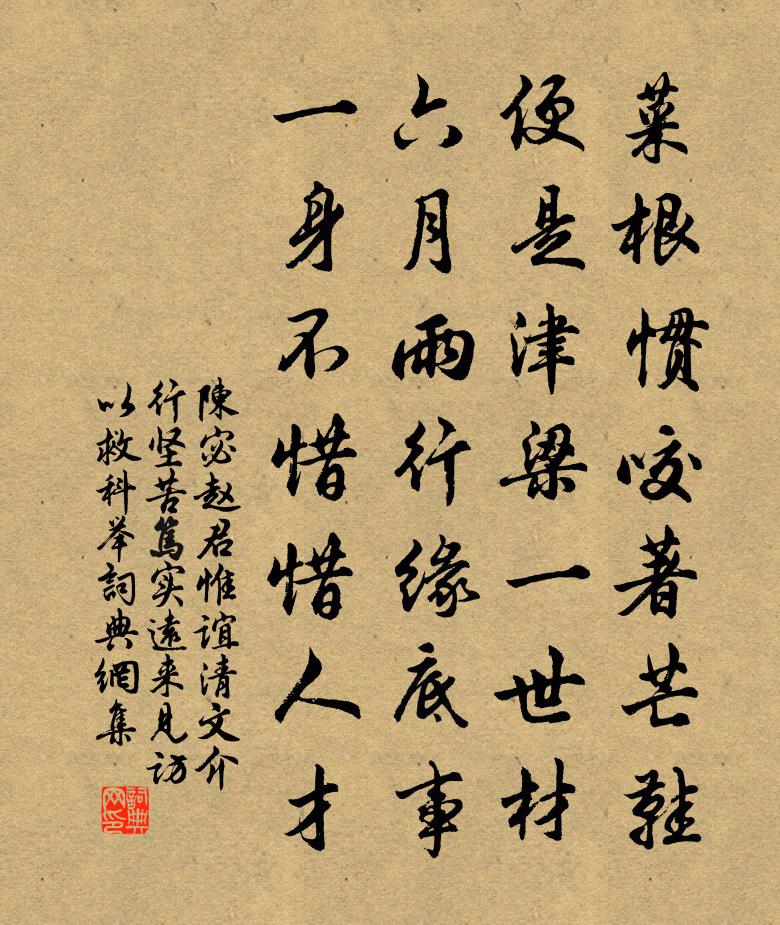 菜根惯咬著芒鞋
便是津梁一世材
六月雨行缘底事
一身不惜惜人才
陳宓赵君惟誼清文介
行坚苦篤实遠来見访
以救科举詞典網集
詞典网印